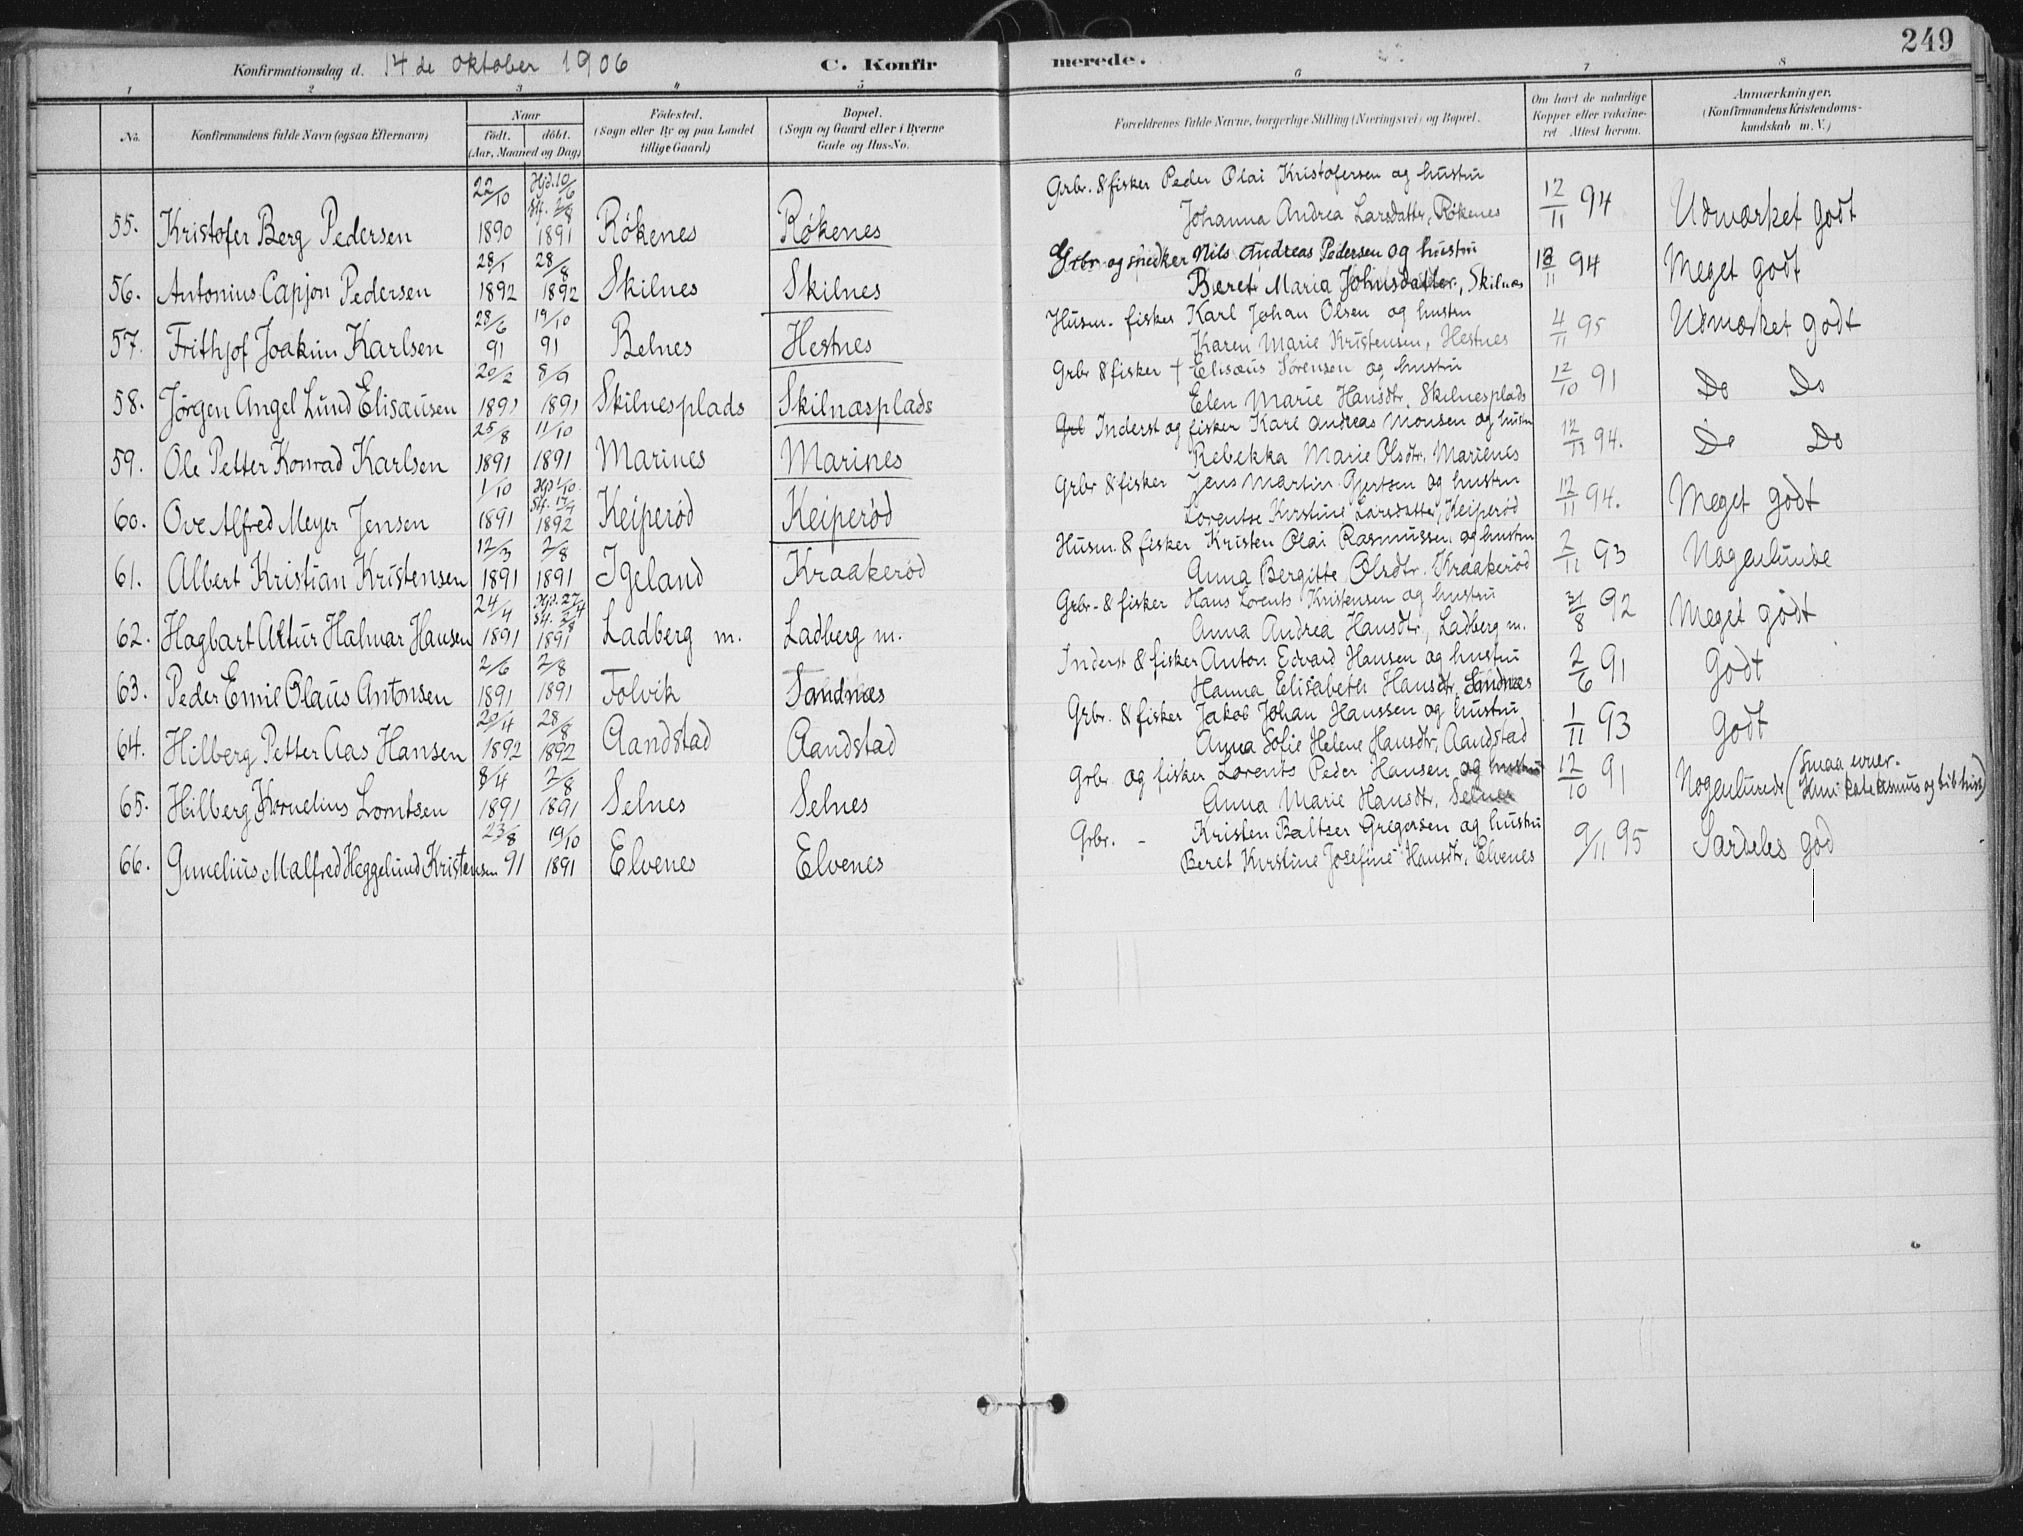 249
Konfirmationsdag d. 14 de oktober 1906 C. Konfirmerede.
1 2 3 4 5 6 7 8
No. Konfirmandens fulde Navn (ogsaa Efternavn) Naar født. døbt. (Aar, Maaned og Dag) Födested. (Sogn eller By og paa Landet tillige Gaard) Bopæl. (Sogn og Gaard eller i Byerne Gade og Hus-No. Forældrenes fulde Navne, borgerlige Stilling (Næringsvei) og Bopæl. Om havt de naturlige Kopper eller vaccineret Attest herom. Anmærkninger. (Konfirmandens Kristendomskundskab m. V.)
22/10 Hjd. 10/6 Grbr. & fisker Peder Olai Kristofersen og hustru
55. Kristofer Berg Pedersen 1890 1891 Rökenes Rökenes Johanna Andrea Larsdattr, Rökenes 12/11 94 Udmærket godt
28/1 28/8 Grbr og snedker Nils Andreas Pedersen og hustru
56. Antonius Capjon Pedersen 1892 1892 Skilnes Skilnes Beret Maria Johnsdatter, Skilnes 94 Meget godt
28/6 19/10 Husm. fisker Karl Johan Olsen og hustru
57. Frithjof Joakim Karlsen 91 91 Belnes Hestnes Karen Marie Kristensen, Hestnes 4/11 95 Udmærket godt
20/2 8/9 Grbr & fisker † Elisæus Sørensen og hustru
58. Jørgen Angel Lund Elisæusen 1891 1891 Skilnesplads Skilnæsplads Elen Marie Hansdtr. Skilnesplads 12/10 91 Do Do
25/8 11/10 Grb Inderst og fisker Karl Andreas Monsen og hustru
59. Ole Petter Konrad Karlsen 1891 1891 Marines Marines Rebekka Marie Olsdtr. Marienes 12/11 94. Do Do
1/10 Hjd 1/10 Grbr & fisker Jens Martin Gjertsen og hustru
60. Ove Alfred Meyer Jensen 1891 1892 Keiperød Keiperød Lorentse Kirstine Larsdatter, Keiperød 12/11 94. Meget godt
12/3 2/8 Husm. & fisker Kristen Olai Rasmussen og hustru
61. Albert Kristian Kristensen 1891 1891 Igeland Kraakerød Anna Bergitte Olsdtr. Kraakerød 2/11 93 Nogenlunde
24/4 Hjd. 27/4 Grbr- & fisker Hans Lorents Kristensen og hustru
62. Hagbart Artur Halmar Hansen 1891 1891 Ladberg m. Ladberg m. Anna Andrea Hansdtr, Ladberg m. 92 Meget godt
2/6 2/8 Inderst & fisker Anton Edvard Hansen og hustru
63. Peder Emil Olaus Antonsen 1891 1891 Folvik Sandnæs Hanna Elisabeth Hansdtr, Sandnæs 2/6 91 Godt
20/4 28/8 Grbr. & fisker Jakob Johan Hanssen og hustru
64. Hilberg Petter Aas Hansen 1892 1892 Aandstad Aandstad Anna Sofie Helene Hansdtr, Aandstad 1/11 93 Godt
8/4 2/8 Grbr og fisker Lorents Peder Hansen og hustru
65. Hilberg Kornelius Lorntsen 1891 1891 Selnes Selnes Anna Marie Hansdtr, Selnes 12/10 91 Nogenlunde (Smaa evner. Kun katekismus og bibhist)
23/8 19/10 Grbr. - Kristen Baltzer Gregersen og hustru
66. Gunelius Malfred Heggelund Kristensen 91 1891 Elvenes Elvenes Beret Kirstine Josefine Hansdtr, Elvenes 9/11 95 Særdeles god